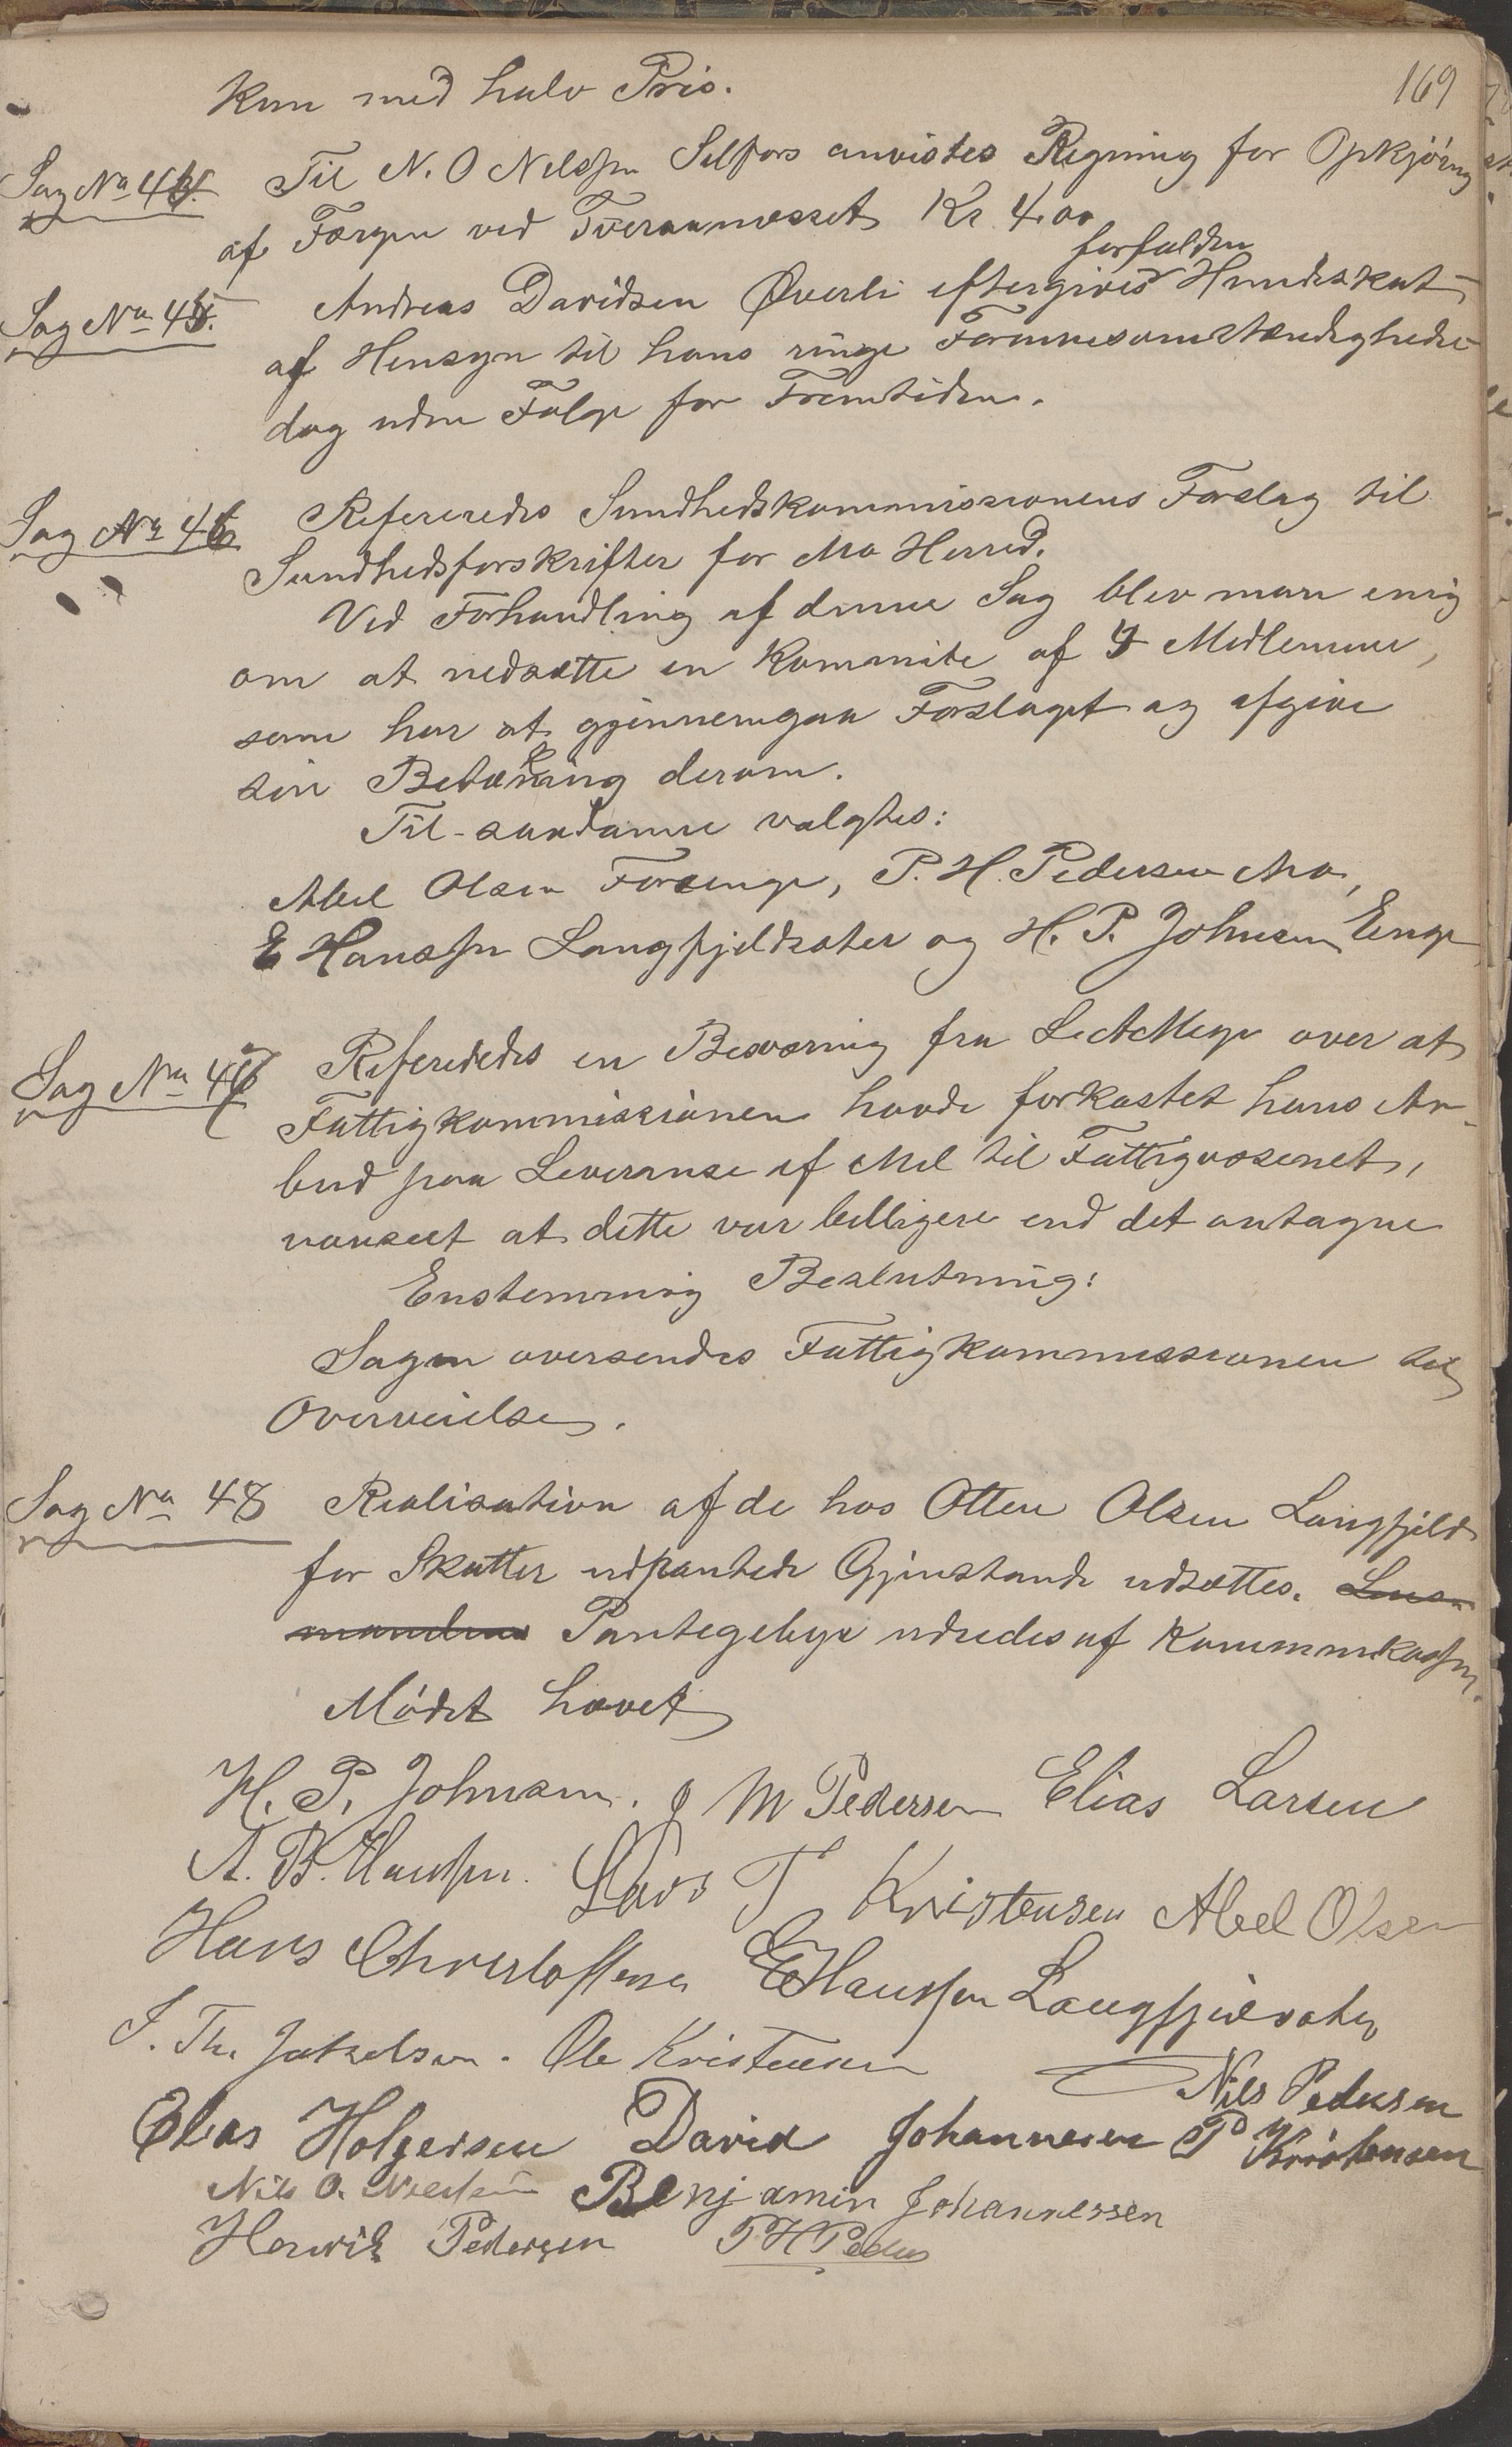 169
kun med halv Pris.
Sag No 44. Til N. O Nilsen Selfors anvistes Regning for Opkjöring
af Færgen ved Tveraanæsset Kr 4.00
forfalden
Sag No 45. Andreas Davidsen Øverli eftergives Hundeskat
af Hensyn til hans ringe Formuesomstændigheder
dog uden Følge for Fremtiden.
Sag No 46 Refereredes Sundhedskommissionens Forslag til
Sundhedsforskrifter for Mo Herred.
Ved Forhandling af denne Sag blev man enig
om at nedsætte en Kommite af 4 Medlemmer,
som har at gjennemgaa Forslaget og afgive
sin Betænkning derom.
Til saadanne valgtes:
Abel Olsen Forsenge, P. H. Pedersen Mo,
E Hanssen Langfjeldsæter og H. P. Johnsen Enge
Sag No 47 Refereredes en Besværing fra L A Meyer over at
Fattigkommissionen havde forkastet hans An-
bud paa Leveranse af Mel til Fattigvæsenet,
uanseet at dette var billigere end det antagne
Enstemmig Beslutning:
Sagen oversendes Fattigkommissionen til
Overveielse.
Sag No 48 Realisation af de hos Otten Olsen Langfjeld
for Skatter udpantede Gjenstande udsættes. Lens-
mandens Pantegebyr udredes af Kommunekassen.
Mödet hævet
H. P. Johnsen. J M Pedersen Elias Larsen
A. B. Hanssen. Lars T Kristensen Abel Olsen
Hans Christoffersen E Hanssen Langfjeldsæter
J. Th. Jakobsen. Ole Kristensen
Nils Pedersen
Elias Holgersen David Johannesen P Kristensen
Nils O. Nilssen Benjamin Johannessen
Henrik Pedersen P H Peders